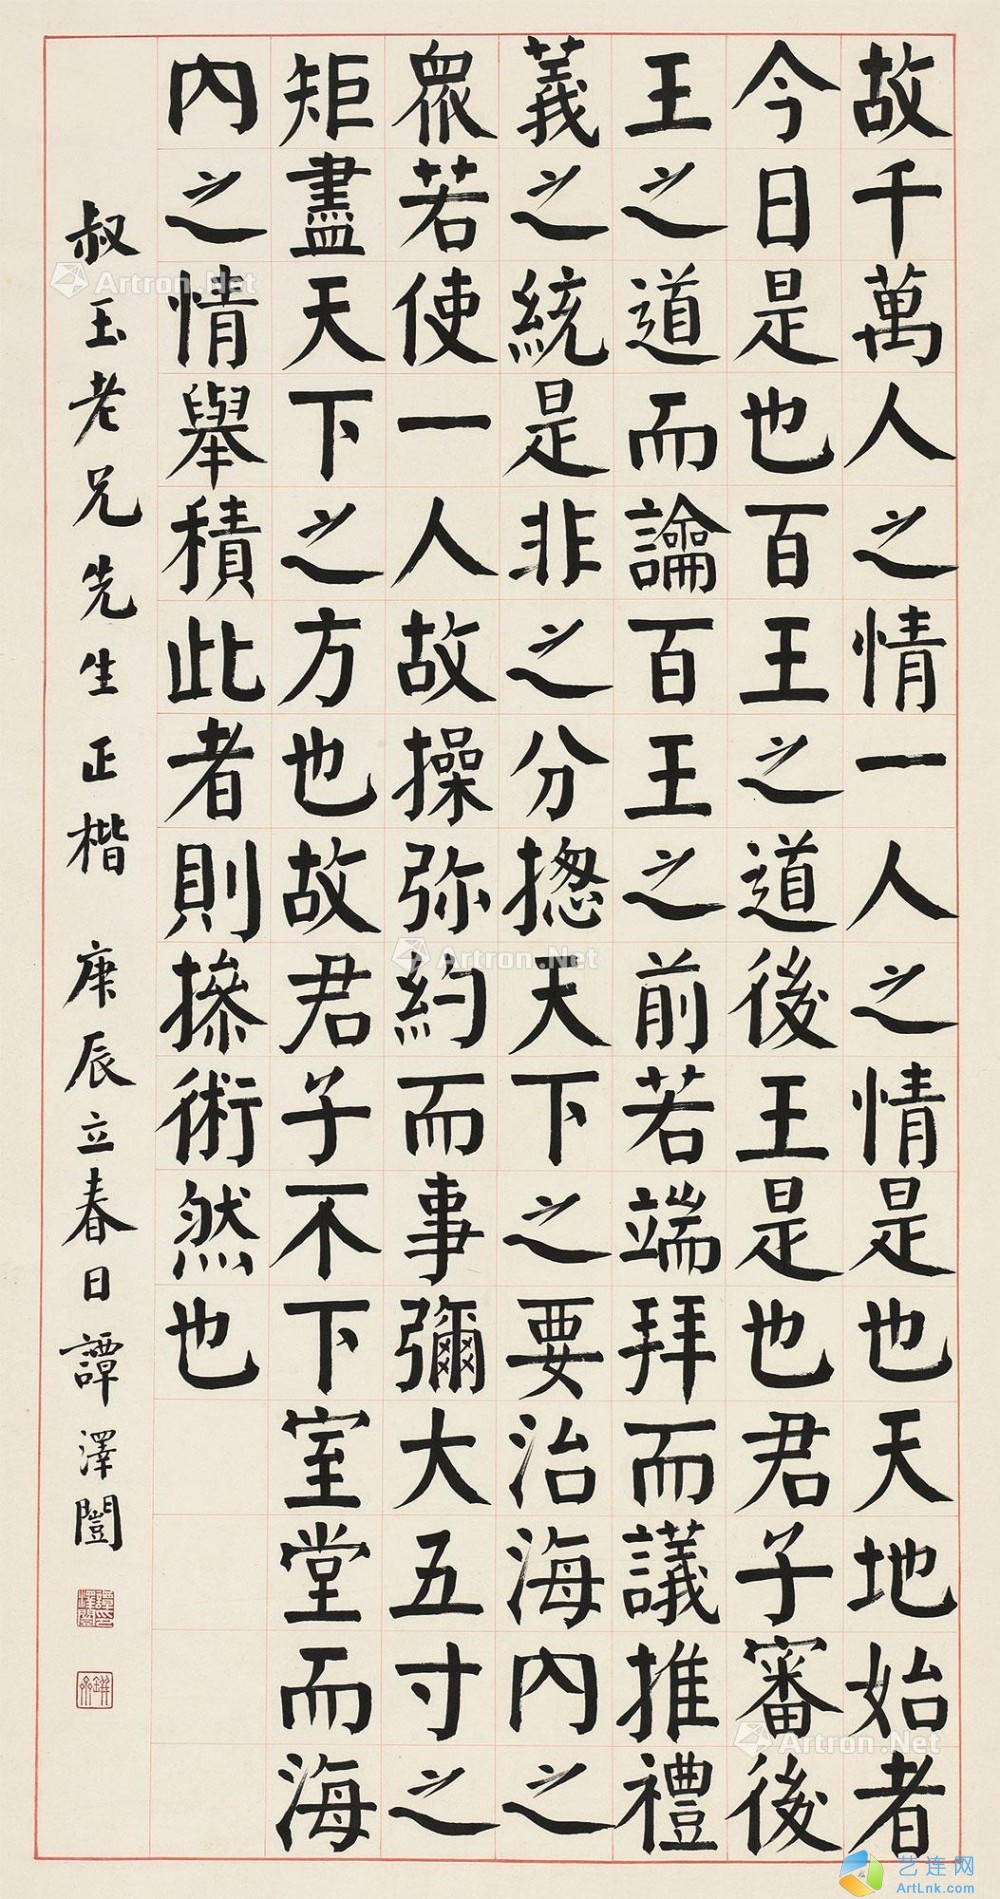 故千萬人之情一人之情是也天地始者
今日是也百王之道後王是也君子審後
王之道而論百王之前若端拜而議推禮
義之統是非之分揔天下之要治海內之
眾若使一人故操弥約而事彌大五寸之
矩盡天下之方也故君子不下室堂而海
內之情舉積此者則摻術然也
叔玉老兄先生正楷 庚辰立春日譚澤闓
Artron.Net
Artron.Net
Artron.Net
艺连网
ArtLnk.com